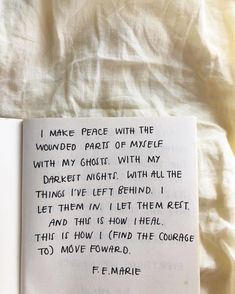 I MAKE PEACE WITH THE
WOUNDED PARTS OF MYSELF
WITH MY GHOSTS. WITH MY
DARKEST NIGHTS. WITH ALL THE
THINGS I'VE LEFT BEHIND. I
LET THEM IN. I LET THEM REST.
AND THIS IS HOW I HEAL.
THIS IS HOW I (FIND THE COURAGE
TO) MOVE FOWARD.
F.E.MARIE